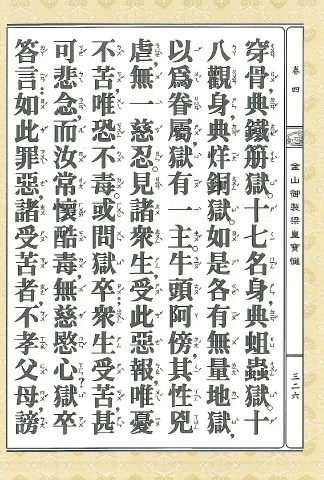 卷四
金山御製梁皇寶懺
三二六
穿骨，典鐵蒴獄。十七名身，典蛆蟲獄。十
八觀身，典烊銅獄。如是各有無量地獄，
以爲眷屬，獄有一主，牛頭阿傍，其性兇
虐，無一慈忍。見諸衆生，受此惡報，唯憂
不苦，唯恐不毒。或問獄卒：衆生受苦，甚
可悲念，而汝常懷酷毒，無慈愍心？獄卒
答言：如此罪惡諸受苦者，不孝父母，謗